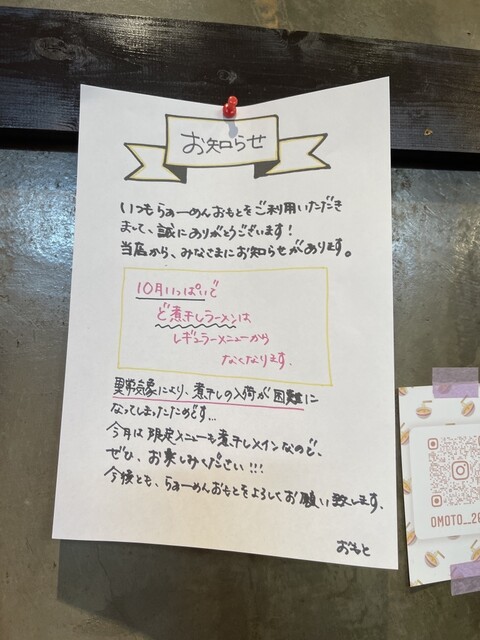 お知らせ
いつもらぁーめんおもとをご利用いただき
まして、誠にありがとうございます!
当店から、みなさまにお知らせがあります。
10月いっぱいで
ど煮干しラーメンは
レギュラーメニューから
なくなります。
異常気象により、煮干しの入荷が困難に
なってしまったためです…
今月は限定メニューも煮干しメインなので、
ぜひ、お楽しみください!!!
今後とも、らぁーめんおもとをよろしくお願い致します。
おもと